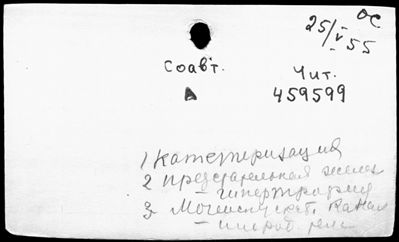 ОС
25/V 55
Соавт.
Чит.
459599
1) Катетеризация
2 предстательная железа
– гипертрофия
3, Мочеиспуск. канал
– инород. тела